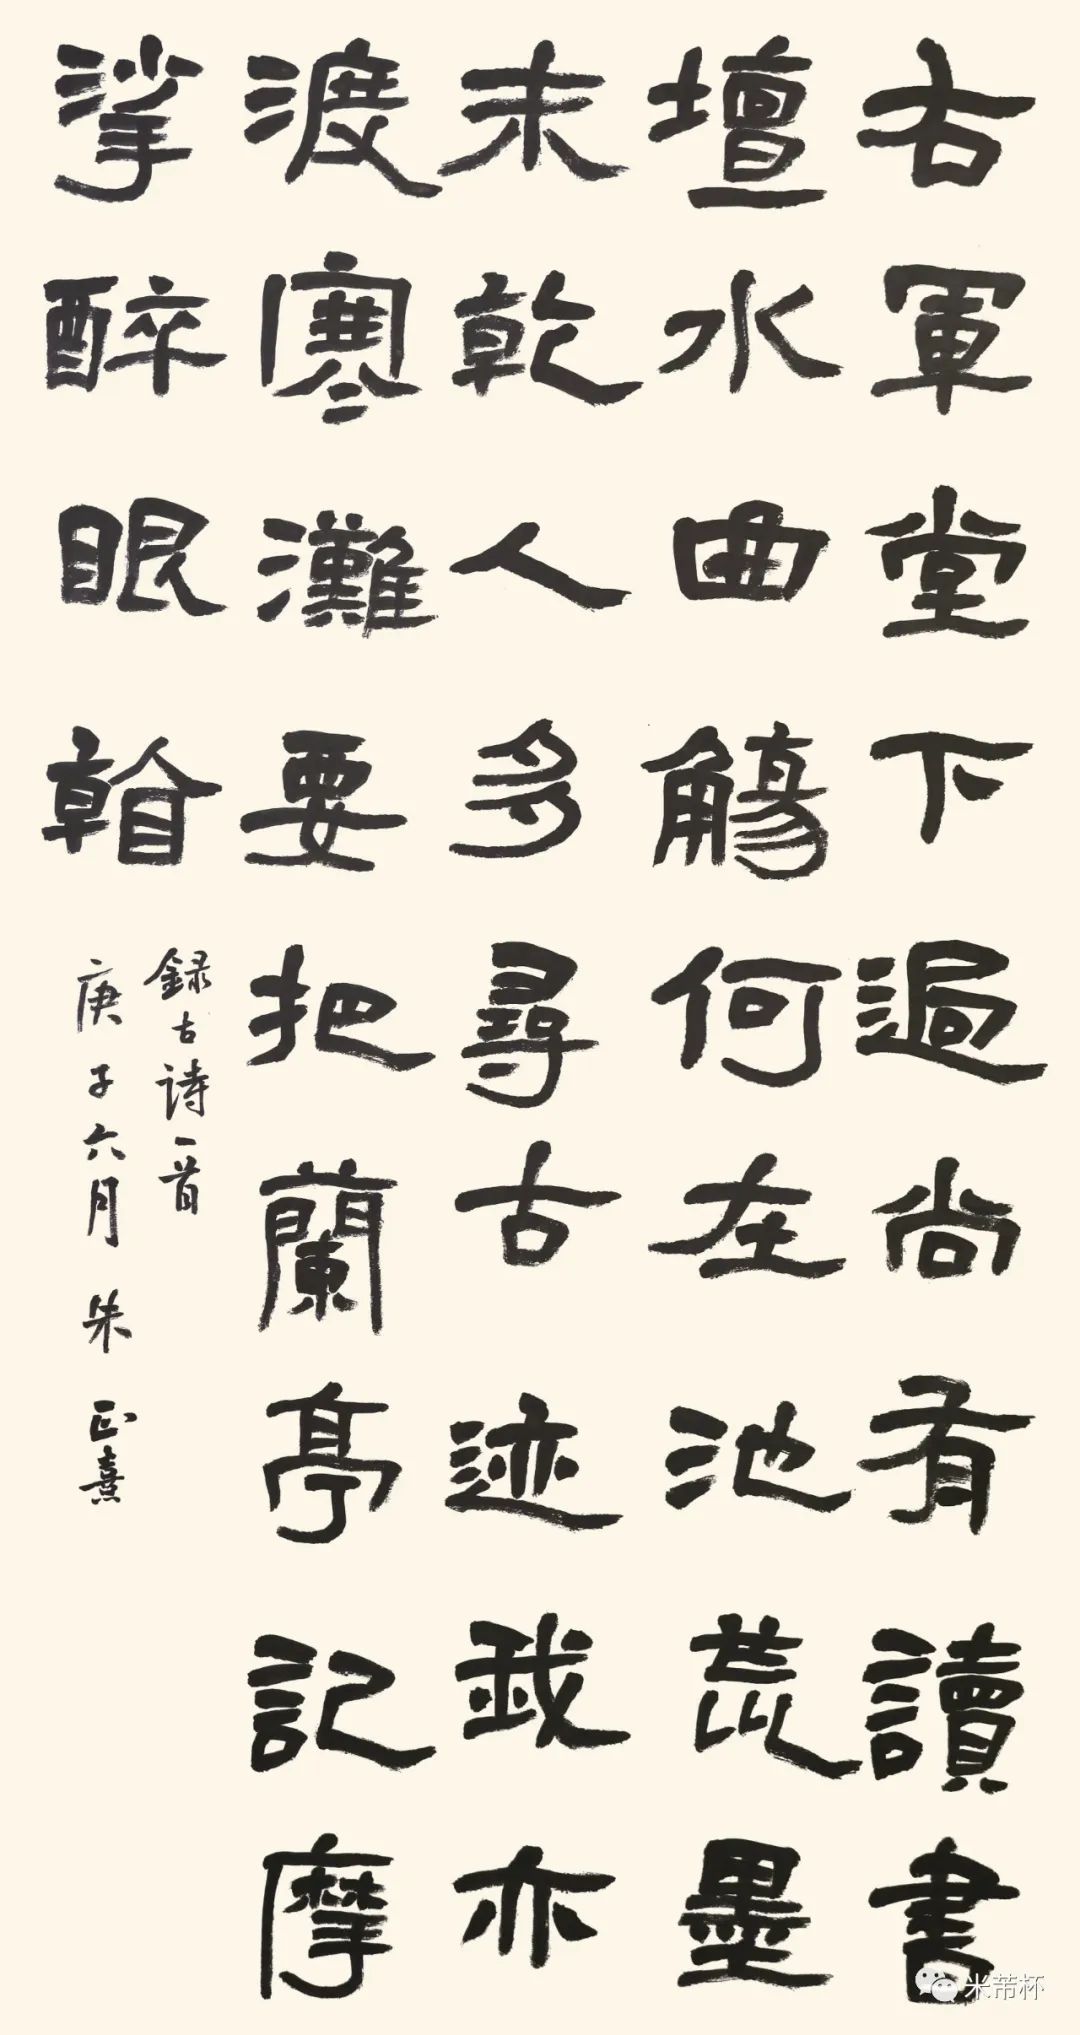 右軍堂下過尚有讀書
壇水曲觴何在池荒墨
未乾人多尋古迹我亦
渡寒灘要把蘭亭記摩
挲醉眼看
録古詩一首
庚子六月朱正熹
米芾杯